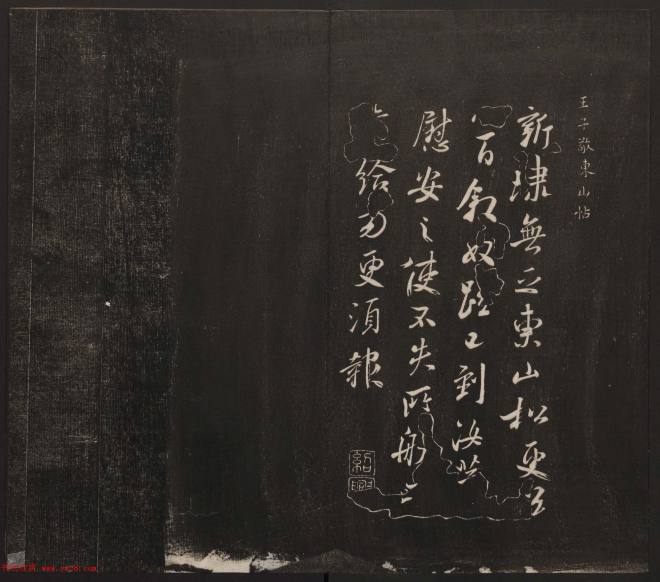 王子敬東山帖
新埭無乏東山松更
百叙奴已到汝
慰安之使不失所船
給勿更須報
紹興